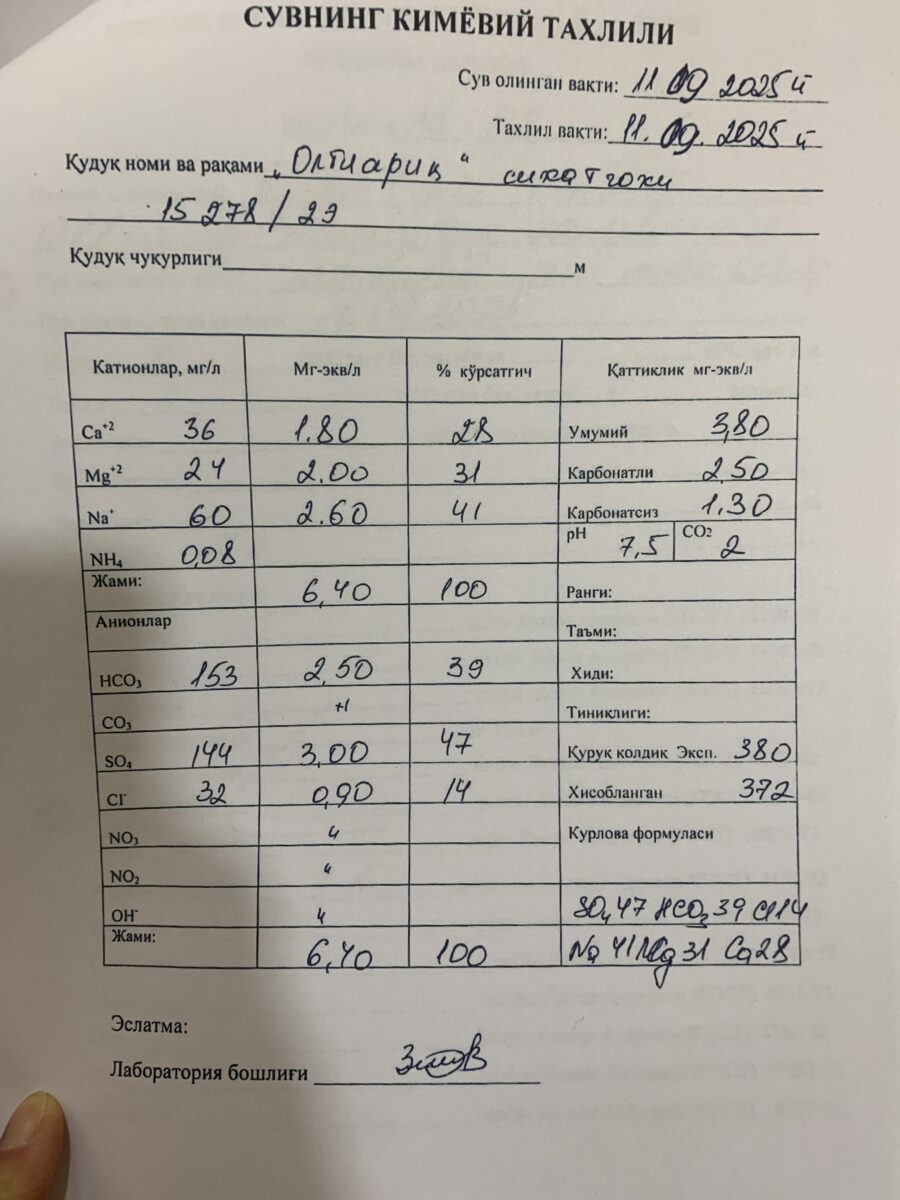 СУВНИНГ КИМЁВИЙ ТАХЛИЛИ
Сув олинган вакти: 11 09 2025 й
Тахлил вакти: 11. 09. 2025 й
Қудуқ номи ва рақами „Олтиариқ“ сихатгохи
15278/29
Қудуқ чуқурлиги м
Катионлар, мг/л Мг-экв/л % кўрсатгич Қаттиклик мг-экв/л
Ca+2 36 1.80 28 Умумий 3,80
Mg+2 24 2.00 31 Карбонатли 2,50
Na+ 60 2.60 41 Карбонатсиз 1.30
NH4 0,08 pH 7,5 CO2 2
Жами: 6,40 100 Ранги:
Анионлар Таъми:
HCO3 153 2,50 39 Хиди:
CO3 Тиниклиги:
SO4 144 3,00 47 Қурук колдик Эксп. 380
Cl- 32 0,90 14 Хисобланган 372
NO3 " Курлова формуласи
NO2 "
OH- " SO4 47 HCO3 39 Cl 14
Жами: 6,40 100 Na 41 Mg 31 Ca 28
Эслатма:
Лаборатория бошлиғи